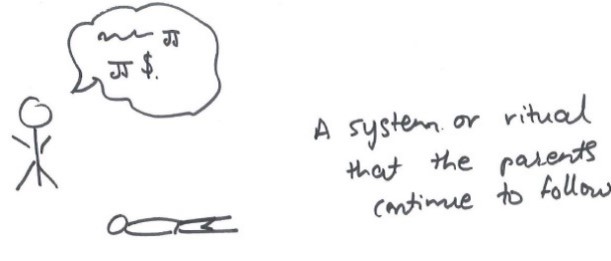 A system or ritual
that the parents
continue to follow